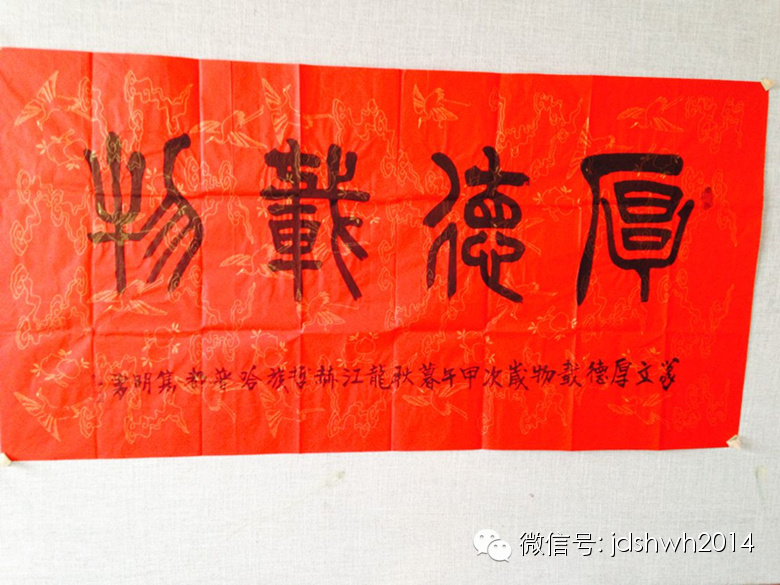 厚德載物
篆文厚德載物歲次甲午暮秋龍江赫哲族哈普都隽明書
微信号: jdshwh2014